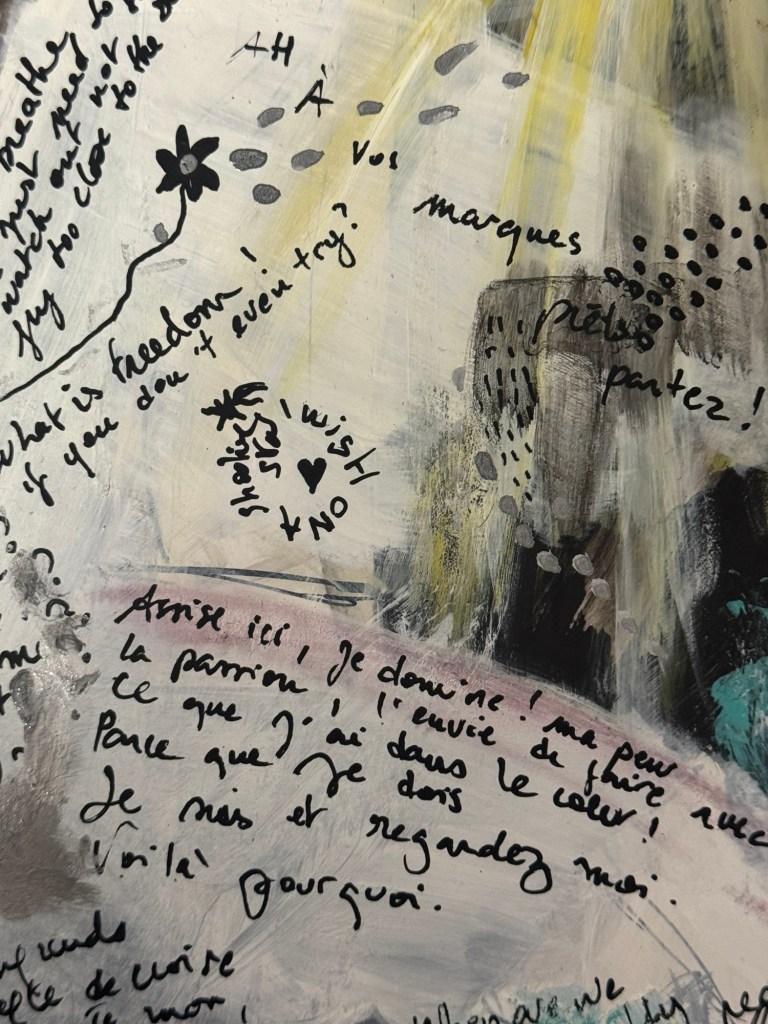 breathe
just need to
watch out not
fly too close to the
AH
À
Vos
marques
prêts
partez!
What is freedom!
if you don't even try?
shooting
star
I wish
NOT
Assise ici, je domine! ma peur
la passion! l'envie de faire avec
ce que j'ai dans le cœur!
Parce que je dois
Je suis et regardez moi.
Voilà
pourquoi.
de croire
when are we